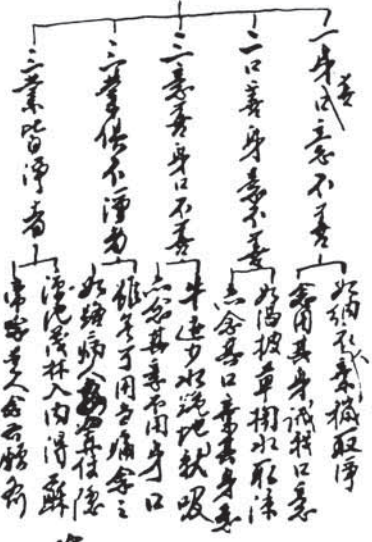 一身善口意不善
二口善身意不善
三意善身口不善
三業俱不淨者
三業皆淨者
如納衣棄穢取淨
念用其身誠捨口意
如渴披草掬水取沫
亦念其口棄其身意
牛迹少水跪地就吸
亦念其意不用身口
雖無可用當痛念之
如病人使隱
清池茂林入內得酥
常念其人念